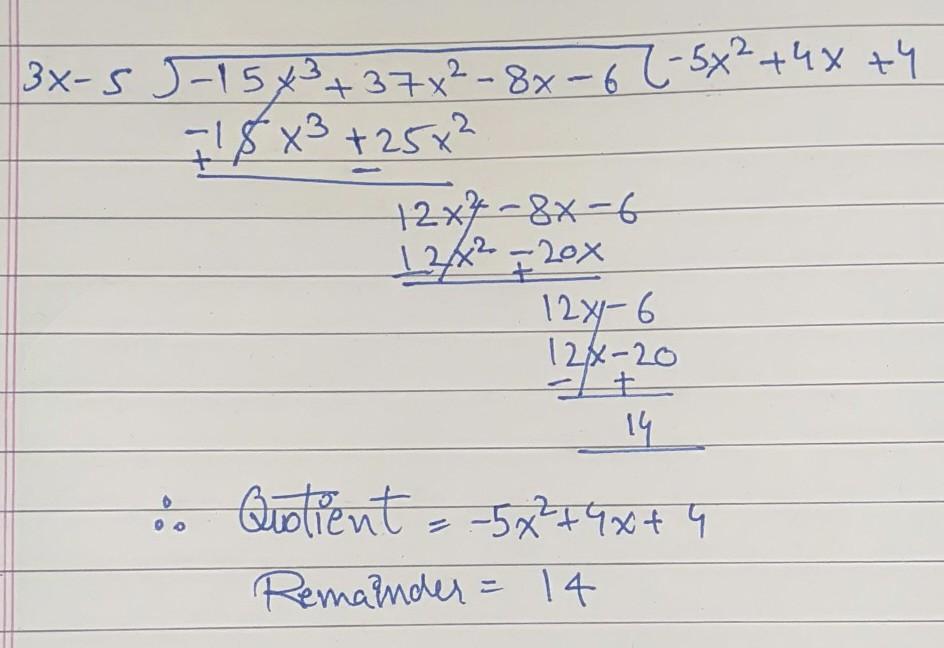 3x-5 ) -15x³+37x²-8x-6 ( -5x²+4x+4
-15x³+25x²
+ -
12x²-8x-6
12x²-20x
- +
12x-6
12x-20
- +
14
∴ Quotient = -5x²+4x+4
Remainder = 14